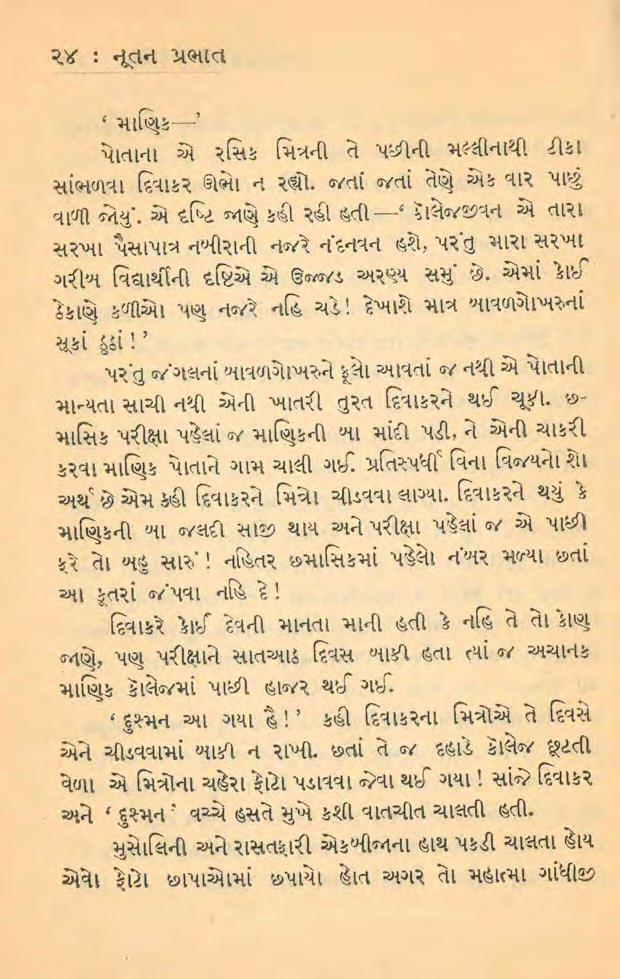 ૨૪ : નૂતન પ્રભાત
‘ માણિક—’
પોતાના એ રસિક મિત્રની તે પછીની મલ્લીનાથી ટીકા
સાંભળવા દિવાકર ઊભો ન રહ્યો. જતાં જતાં તેણે એક વાર પાછું
વાળી જોયું. એ દૃષ્ટિ જાણે કહી રહી હતી—‘ કૉલેજજીવન એ તારા
સરખા પૈસાપાત્ર નબીરાની નજરે નંદનવન હશે, પરંતુ મારા સરખા
ગરીબ વિદ્યાર્થીની દૃષ્ટિએ એ ઉજ્જડ અરણ્ય સમું છે. એમાં કોઈ
ઠેકાણે કળીઓ પણ નજરે નહિ ચડે! દેખાશે માત્ર બાવળગોખરુનાં
સૂકાં ઠૂંઠાં ! ’
પરંતુ જંગલનાં બાવળગોખરુને ફૂલો આવતાં જ નથી એ પોતાની
માન્યતા સાચી નથી એની ખાતરી તુરત દિવાકરને થઈ ચૂકી. છ-
માસિક પરીક્ષા પહેલાં જ માણિકની બા માંદી પડી, ને એની ચાકરી
કરવા માણિક પોતાને ગામ ચાલી ગઈ. પ્રતિસ્પર્ધી વિના વિજયનો શો
અર્થ છે એમ કહી દિવાકરને મિત્રો ચીડવવા લાગ્યા. દિવાકરને થયું કે
માણિકની બા જલદી સાજી થાય અને પરીક્ષા પહેલાં જ એ પાછી
ફરે તો બહુ સારું ! નહિતર છમાસિકમાં પહેલો નંબર મળ્યા છતાં
આ કૂતરાં જંપવા નહિ દે !
દિવાકરે કોઈ દેવની માનતા માની હતી કે નહિ તે તો કોણ
જાણે, પણ પરીક્ષાને સાતઆઠ દિવસ બાકી હતા ત્યાં જ અચાનક
માણિક કૉલેજમાં પાછી હાજર થઈ ગઈ.
‘ દુશ્મન આ ગયા હૈ ! ’ કહી દિવાકરના મિત્રોએ તે દિવસે
એને ચીડવવામાં બાકી ન રાખી. છતાં તે જ દહાડે કૉલેજ છૂટતી
વેળા એ મિત્રોના ચહેરા ફોટો પડાવવા જેવા થઈ ગયા ! સાંજે દિવાકર
અને ‘ દુશ્મન ’ વચ્ચે હસતે મુખે કશી વાતચીત ચાલતી હતી.
મુસોલિની અને રાસતફારી એકબીજાના હાથ પકડી ચાલતા હોય
એવો ફોટો છાપાઓમાં છપાયો હોત અગર તો મહાત્મા ગાંધીજી